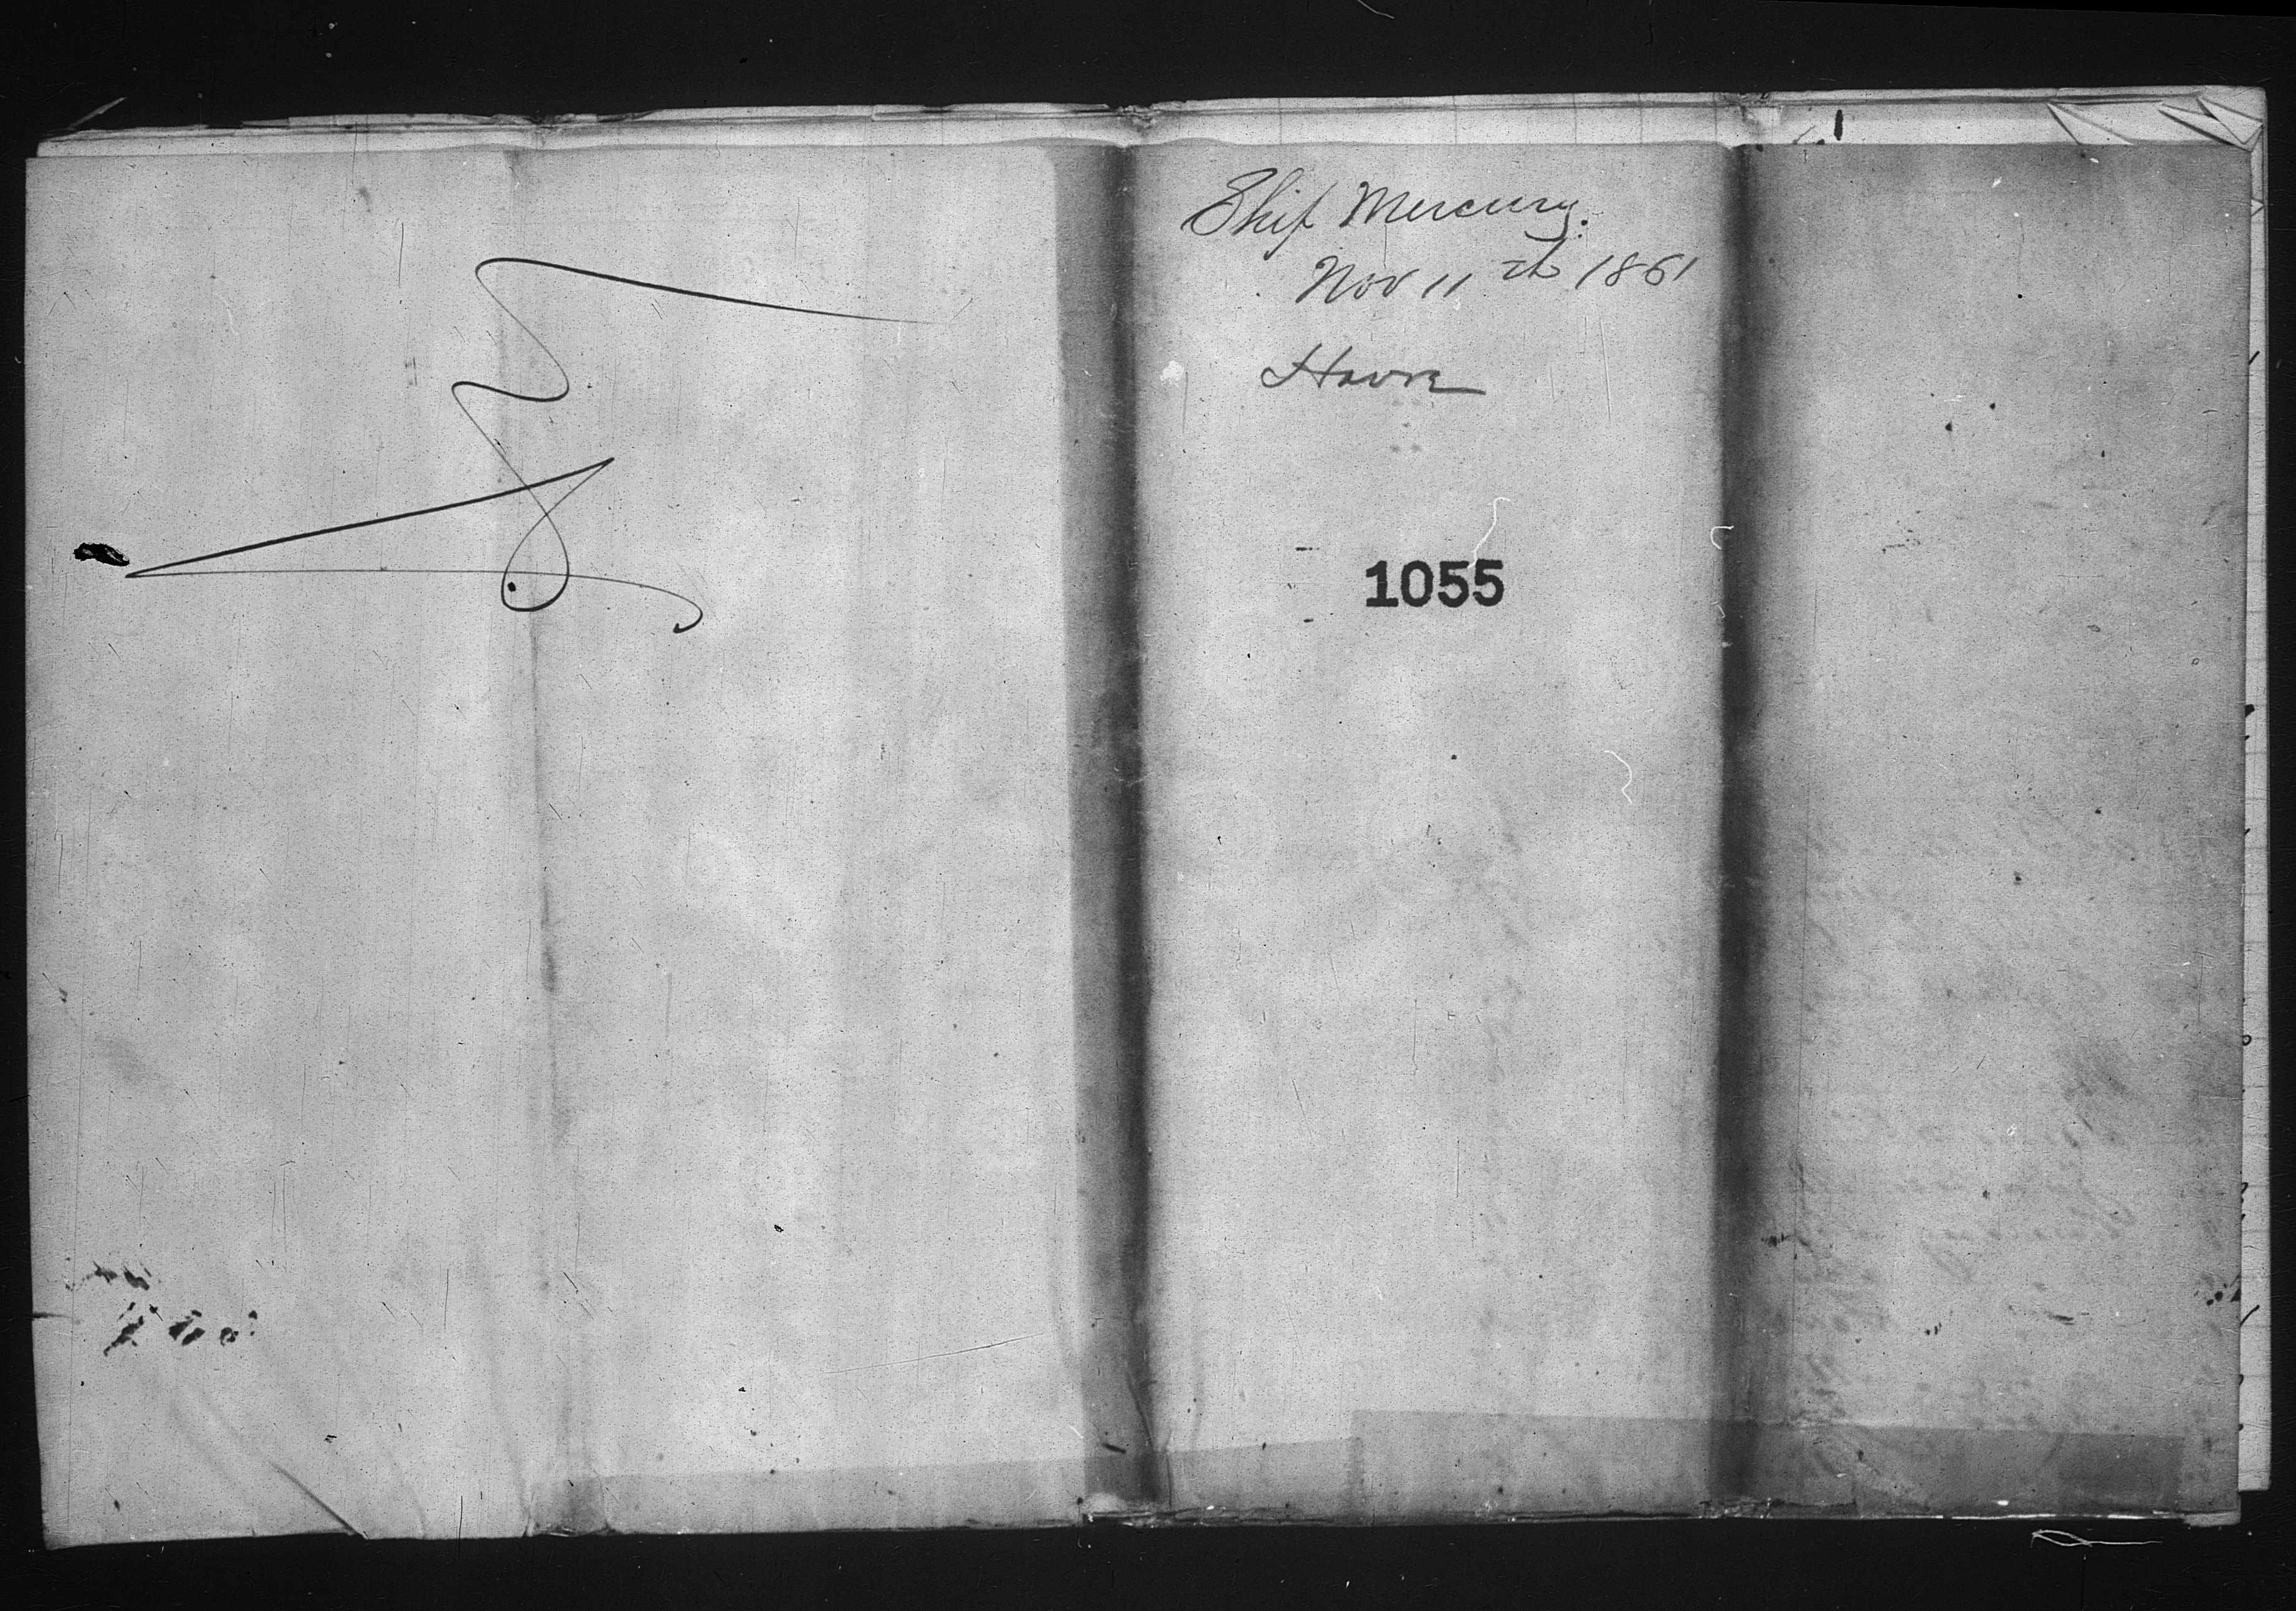 Ship Mercury.
Nov 11th 1861
Havre
1055